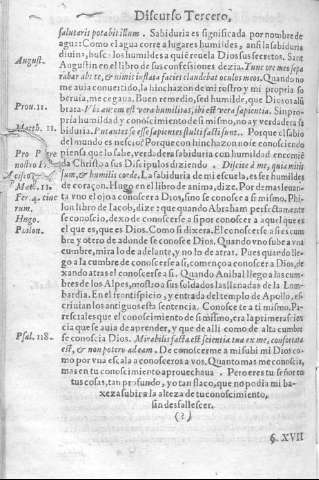 Discurso Tercero,
salutaris potabit illum. Sabiduria es significada por nombre de
agua: Como el agua corre a lugares humildes, ansi la sabiduria
diuina, busca los humildes a quië reuela Dios sus secretos. Sant
August.
Augustin en el libro de sus confessiones dezia. Tunc
me abaxaua conuertido, la hinchazon de mi rostro y mi propria so
beruia, me cegaua. Buen remedio, sed humilde, que Dios os alü
Prou. 11.
brara. Vbi autem est vera humilitas, ibi est vera sapientia. Sin pro-
pria humildad y conocimiento de si mismo, no ay verdadera sa
Matth. 11.
biduria. Putantes se esse sapientes stulti facti sunt. Porque el sabio
del mundo es necio? Porque con hinchazon no se conosciendo
piensa que lo sabe, verdadera sabiduria con humildad
da Christo a sus Discipulos diziendo. Discite a me, quia mitis
sum, & humilis corde. La sabiduria de mi escuela, es ser humildes
Matt. 11.
de coraçon. Hugo en el libro de anima, dize. Por demas leuan-
ta vno el ojo a conoscer a Dios, sino se conosce a si mismo. Phi-
rum.
lon libro de Iacob, dize: que quando Abraham perfectamente
Hugo.
se conoscio, dexo de conoscerse a si por conoscer a aquel que es
Psalon.
el que es, que es Dios. Como si dixera. El conoscerse a si es cum
bre y otero de adonde se conosce Dios. Quando vno sube a vna
cumbre, mira lo de adelante, y no lo de atras. Pues quando lle-
go a la cumbre de conoscerse a si, començo a conoscer a Dios, de
xando atras el conoscerse a si. Quando Anibal llego a las cum-
bres de los Alpes, mostro a sus soldados las llanadas de la Lom-
bardia. En el frontispicio, y entrada del templo de Apollo, es-
criuian los antiguos esta sentencia. Conosce te a ti mismo. Pa-
resciales que el conoscimiento de si mismo, era la primera scien
cia que se auia de aprender, y que de alli como de alta cumbre
Psal. 118.
se conoscia Dios. Mirabilis facta est scientia tua ex me, confortata
est, & non potero ad eam. De conoscerme a mi subi mi Dios co-
mo por vna escala a conosceros a vos. Quanto mas me conoscia,
mas en tu conoscimiento aprouechaua. Pero eres tu señor to
tus cosas, tan profundo, y yo tan flaco, que no podia mi ba-
xeza subir a la alteza de tu conoscimiento,
sin desfallescer.
(?)
§. XVII